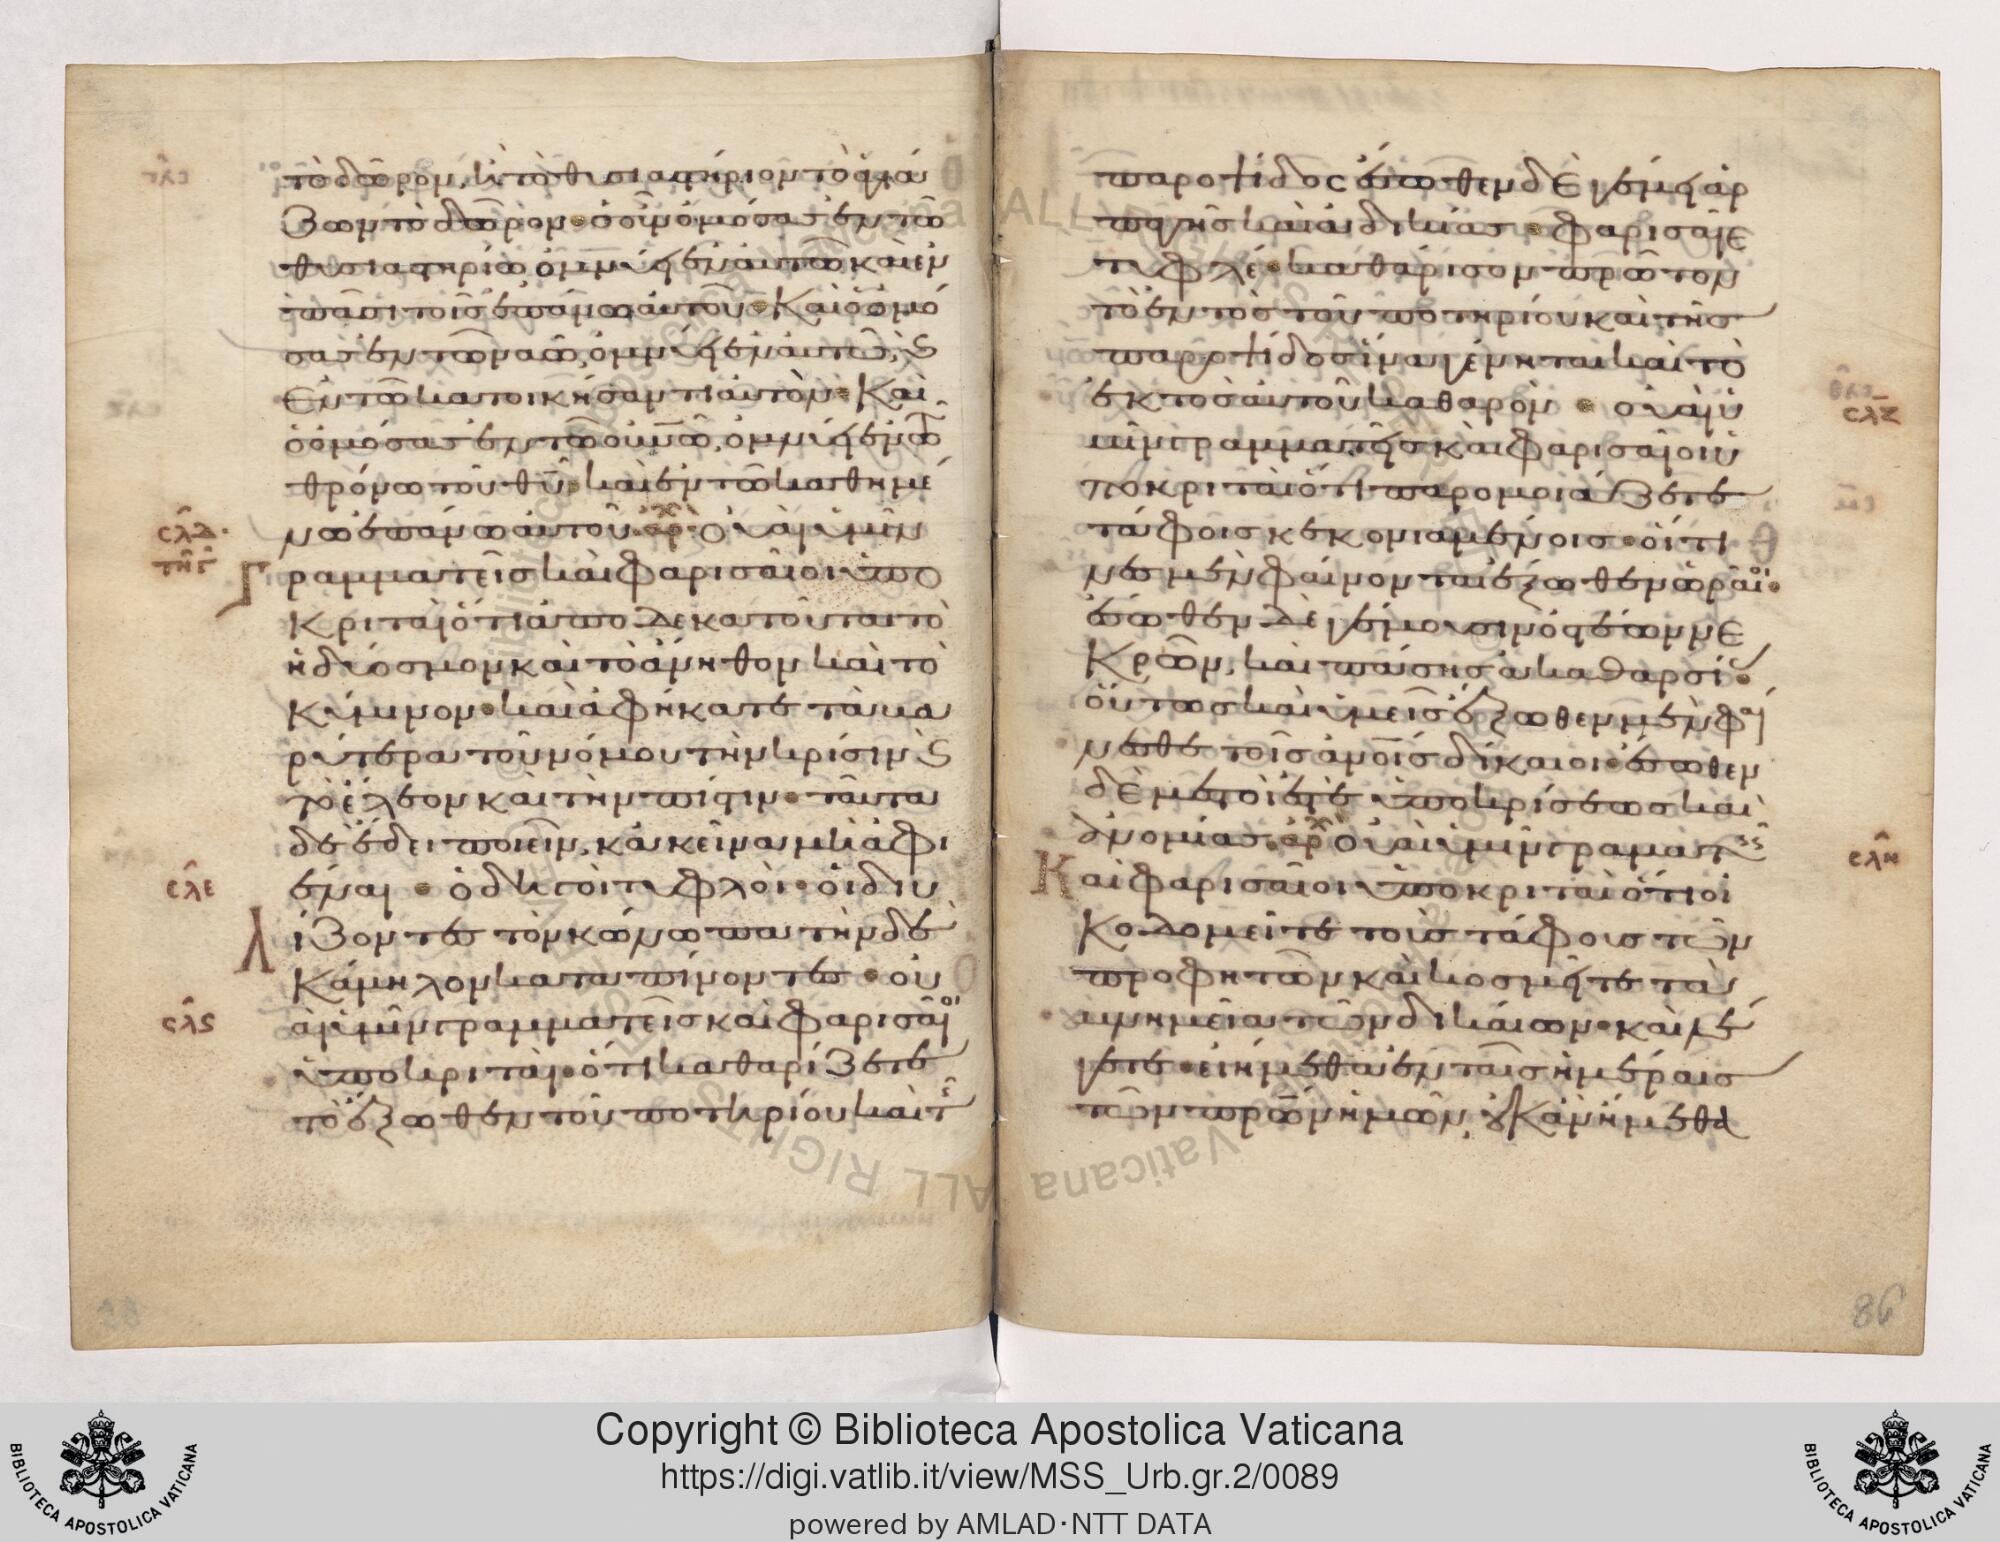 τὸ δῶρον, ἢ τὸ θυσιαστήριον τὸ ἁγιά
ζων τὸ δῶρον· ὁ οὖν ὀμόσας ἐν τῶ
θυσιαστηρίω ὀμνύει ἐν αὐτῶ καὶ ἐν
πᾶσι τοῖς ἐπάνω αὐτοῦ· Καὶ ὁ ὀμό
σας ἐν τῶ ναῶ, ὀμνύει ἐν αὐτῶ, ϗ
ἐν τῶ κατοικήσαντι αὐτόν· Καὶ
ὁ ὀμόσας ἐν τῶ οὐνῶ, ὀμνύει ἐν τῶ
θρόνω τοῦ θῦ· καὶ ἐν τῶ καθημέ
νω ἐπάνω αὐτοῦ· ἀρχ Οὐαὶ ὑμῖν
σλδ
τῇ γ
Γραμματεῖς καὶ Φαρισαῖοι ὑπο
Κριταὶ ὅτι ἀποδεκατοῦται τὸ
ἡδύοσμον καὶ τὸ ἄνηθον καὶ τὸ
κύμινον· καὶ ἀφήκατε τὰ βα
ρύτερα τοῦ νόμου τὴν κρίσιν ϗ
τὸ ἔλεον καὶ τὴν πίστιν· ταῦτα
δὲ ἔδει ποιεῖν, κἀκεῖνα μὴ ἀφι
σλε
έναι· ὁδηγοὶ τυφλοὶ· οἱ διυ
λίζοντες τὸν κώνωπα τὴν δὲ
Κάμηλον καταπίνοντες· οὐ
σλς
αὶ ὑμῖν γραμματεῖς καὶ Φαρισαῖοι
ὑποκριταὶ· ὅτι καθαρίζετε
τὸ ἔξωθεν τοῦ ποτηρίου καὶ τῆ
παροψίδος ἔσωθεν δὲ γέμει ἁρ
παγῆς καὶ ἀδικίας· Φαρισαῖε
τυφλέ· καθάρισον πρῶτον
τὸ ἐντὸς τοῦ ποτηρίου καὶ τῆς
παροψίδος ἵνα γένηται καὶ τὸ
ἐκτὸς αὐτοῦ καθαρόν· οὐαὶ ὑ
σλζ
μῖν γραμματεῖς καὶ Φαρισαῖοι ὑ
ποκριταὶ ὅτι παρομοιάζετε
τάφοις κεκονιαμένοις· οἵτι
νες μὲν φαίνονται ἔξωθεν ὡραῖοι·
ἔσωθεν δὲ γέμουσιν ὀστέων νε
Κρῶν, καὶ πάσης ἀκαθαρσί
οὕτως καὶ ὑμεῖς ἔξωθεν μὲν φαί
νεσθε τοῖς ἀνοῖς δίκαιοι· ἔσωθεν
δὲ μεστοί ἐστε ὑποκρίσεως καὶ
ἀνομίας· ἀρχ Οὐαὶ ὑμῖν γραματεῖς
σλη
Καὶ Φαρισαῖοι ὑποκριταὶ ὅτι οἰ
Κοδομεῖτε τοὺς τάφοις τῶν
προφητῶν καὶ κοσμεῖτε τὰ
μνημεῖα τῶν δικαίων· καὶ λέ
γετε· εἰ ἤμεθα ἐν ταῖς ἡμέραις
τῶν πρῶν ἡμῶν, οὐκ ἂν ἤμεθα
86
Copyright © Biblioteca Apostolica Vaticana
https://digi.vatlib.it/view/MSS_Urb.gr.2/0089
powered by AMLAD·NTT DATA
BIBLIOTECA APOSTOLICA VATICANA
BIBLIOTECA APOSTOLICA VATICANA